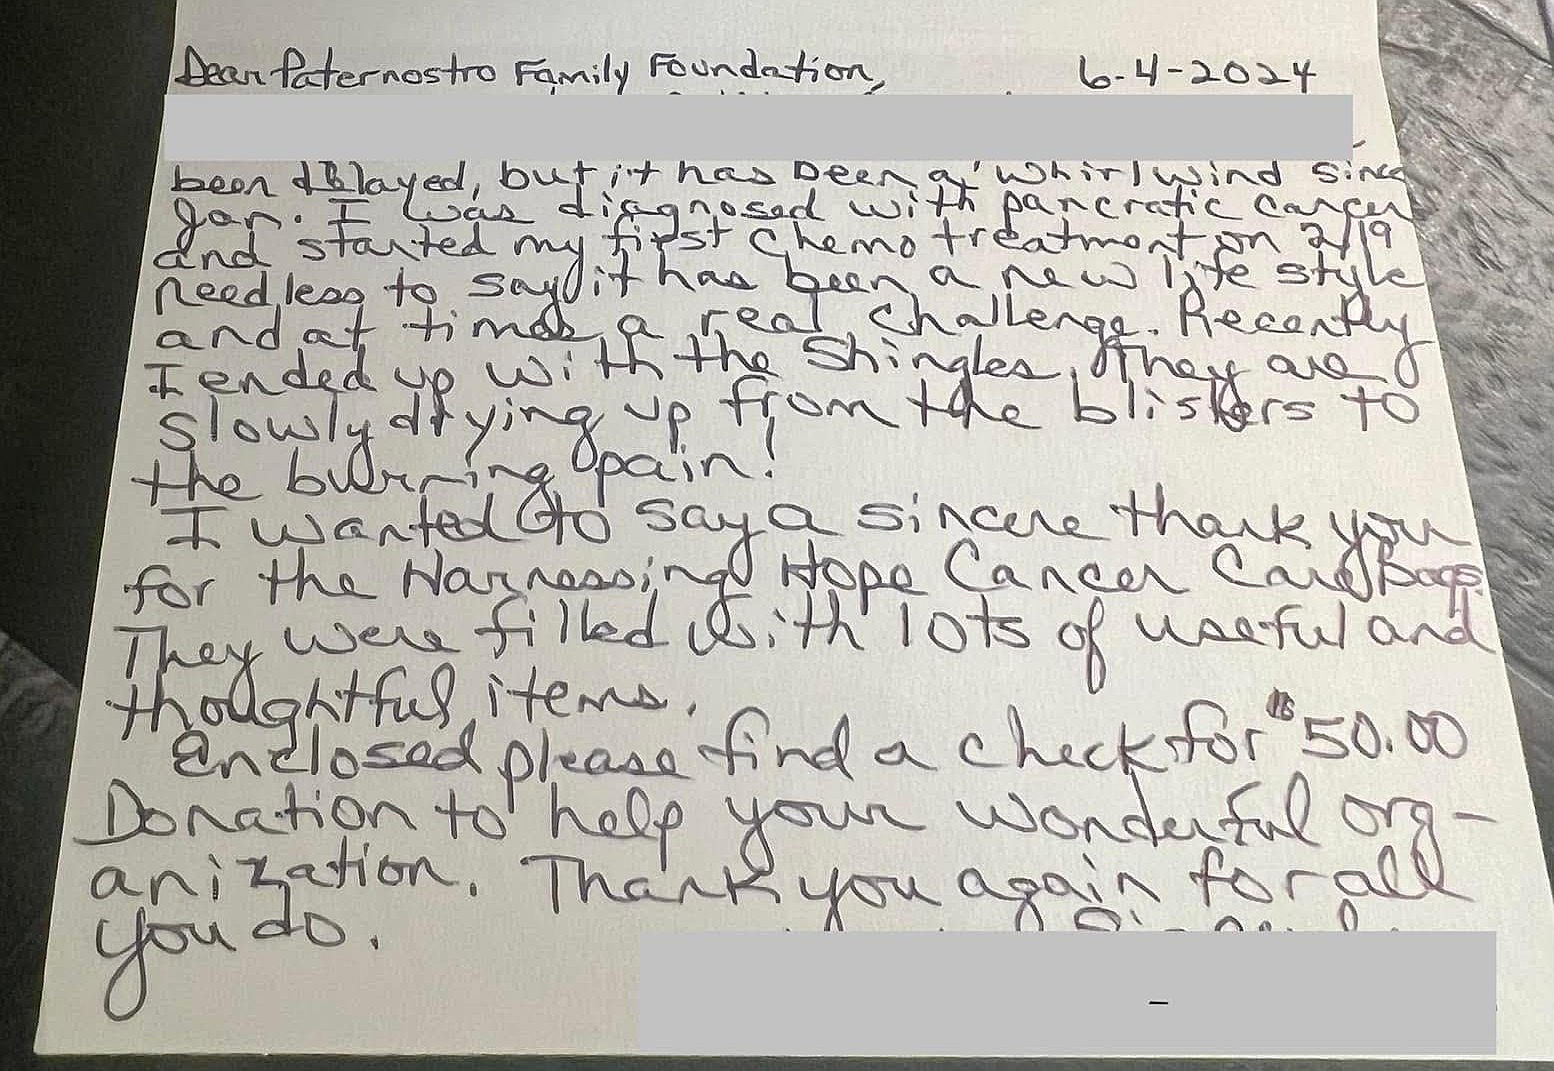 Dear Paternostro Family Foundation, 6-4-2024
been delayed, but it has been a whirlwind since
Jan. I was diagnosed with pancratic cancer
and started my first chemo treatment on 2/19
needless to say it has been a new life style
and at times a real challenge. Recently
I ended up with the shingles. They are
slowly drying up from the blisters to
the burning pain!
I wanted to say a sincere thank you
for the Harnessing Hope Cancer Care Bags.
They were filled with lots of useful and
thoughtful items.
Enclosed please find a check for $50.00
Donation to help your wonderful org-
anization. Thank you again for all
you do.